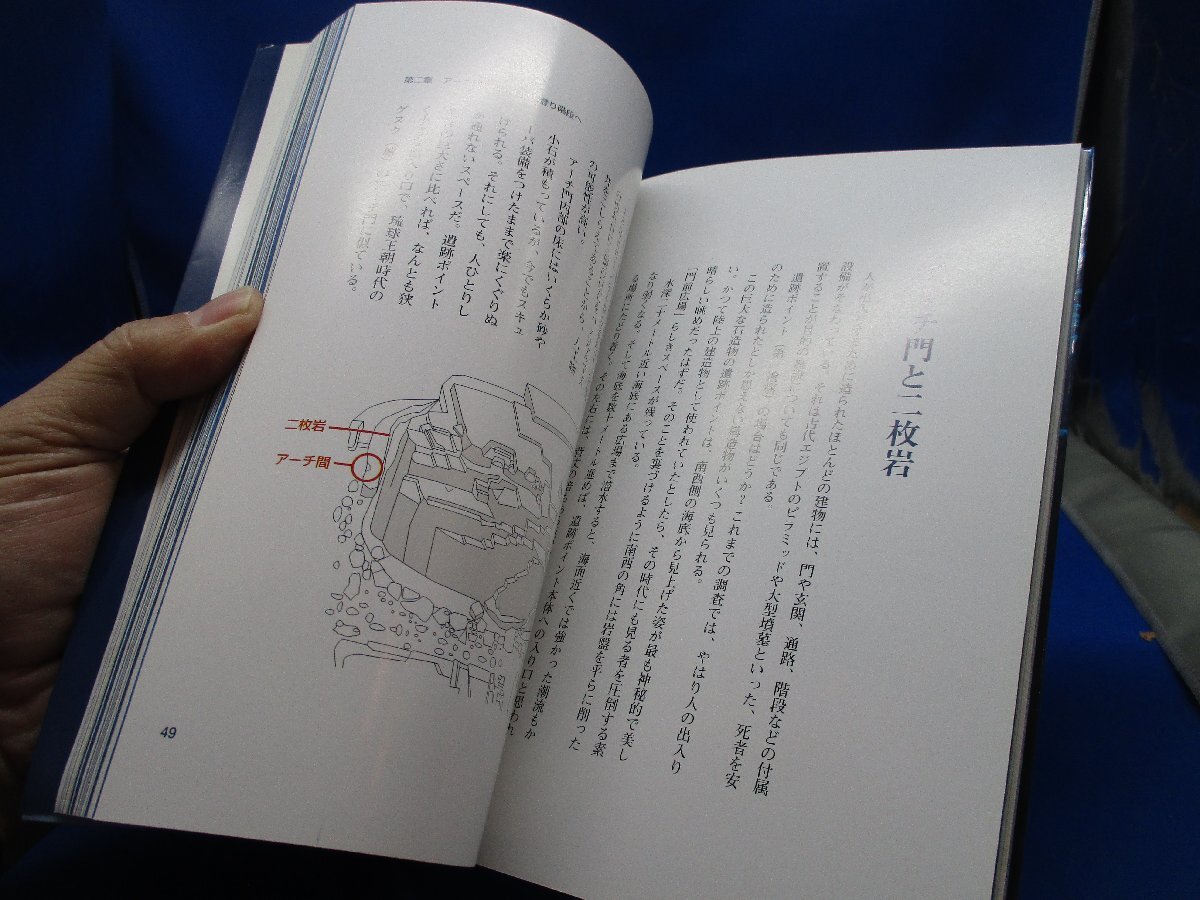 チ門と二枚岩
に造られたほとんどの建物には、門や玄関、通路、階段などの付属
設備がそなわっている。それは古代エジプトのピラミッドや大型墳墓といった、死者を安
置することが目的の施設についても同じである。
遺跡ポイント の場合はどうか?これまでの調査では、やはり人の出入り
のために造られたとしか思えない構造物がいくつも見られる。
この巨大な石造物の遺跡ポイントは、南西側の海底から見上げた姿が最も神秘的で美し
い。かつて陸上の建造物として使われていたとしたら、その時代にも見る者を圧倒する素
晴らしい眺めだったはずだ。そのことを裏づけるように南西の角には岩盤を平らに削った
「門前広場」らしきスペースが残っている。
水深二十メートル近い海底にある広場まで潜水すると、海面近くでは強かった潮流もか
なり弱くなる。そして海底を数十メートル進めば、遺跡ポイント本体への入り口と思われ
る場所にたどり着く。その左右には、
第二章 アーチ
り階段へ
の可能性が高い。
アーチ門内部の床にはいくらか砂や
小石が積もっているが、今でもスキュ
ーバ装備をつけたままで楽にくぐりぬ
けられる。それにしても、人ひとりし
か通れないスペースだ。遺跡ポイント
大きさに比べれば、なんとも狭
り口で、琉球王朝時代の
グスク
門に似ている。
二枚岩
アーチ間
49